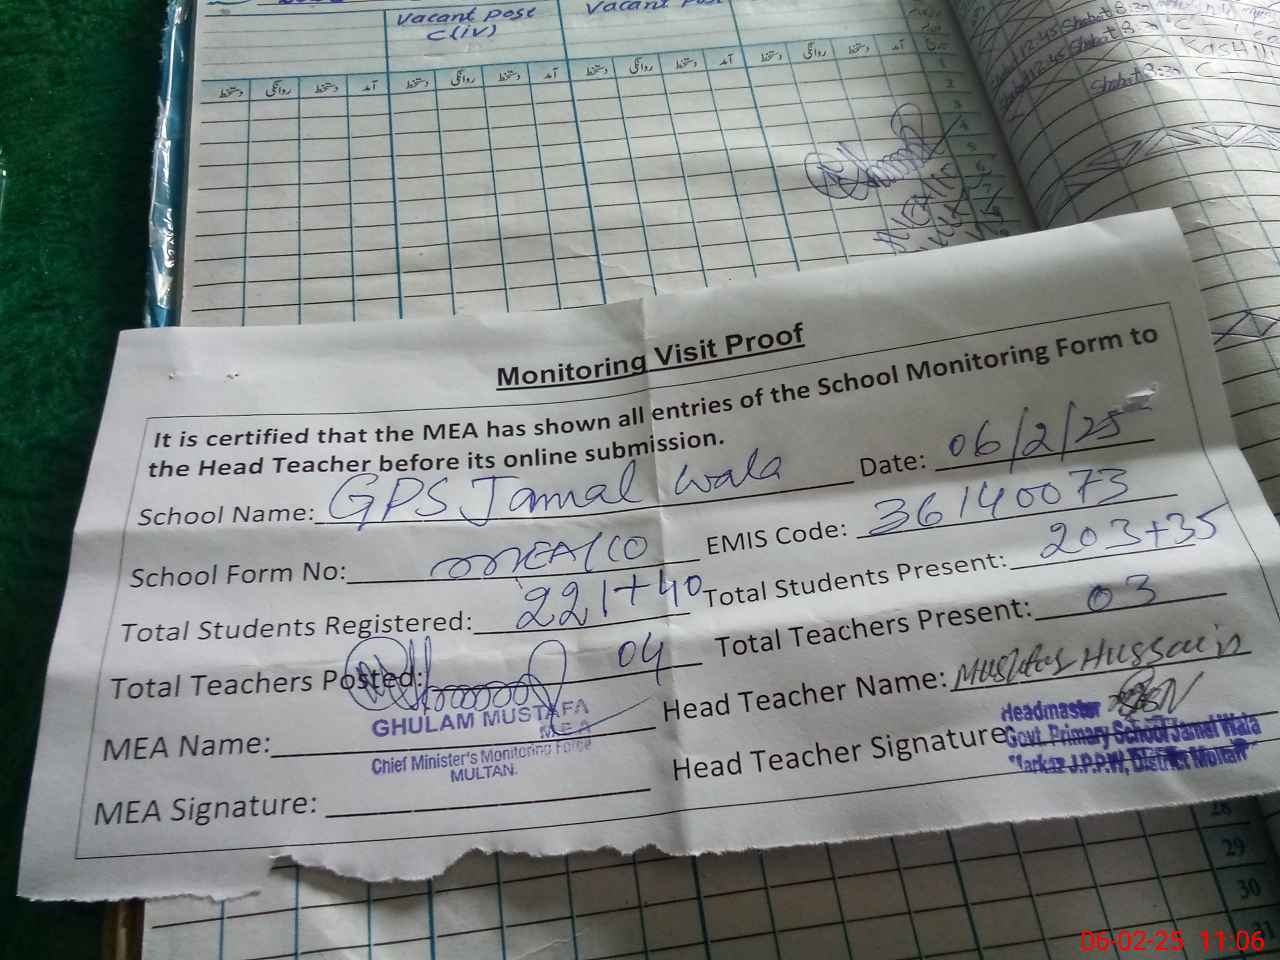 Vacant post
C(iv)
Vacant post
دستخط روانگی دستخط آمد دستخط روانگی دستخط آمد دستخط روانگی دستخط آمد دستخط روانگی دستخط آمد
1
2
3
4
5
6
7
12:45 Shabat 8:30
12:45 Shabat 8:30 C
Shabat 8:30 C
Monitoring Visit Proof
It is certified that the MEA has shown all entries of the School Monitoring Form to
the Head Teacher before its online submission.
School Name: GPS Jamal Wala Date: 06/2/25
School Form No: EMIS Code: 36140073
Total Students Registered: 221+40 Total Students Present: 203+35
Total Teachers Posted: 04 Total Teachers Present: 03
MEA Name: GHULAM MUSTAFA Head Teacher Name: Mushtaq Hussain
MEA
Chief Minister's Monitoring Force
MULTAN.
MEA Signature: Head Teacher Signature
Headmaster
Govt. Primary School Jamal Wala
Markaz J.P.P.W, District Multan
28
29
30
31
06-02-25 11:06